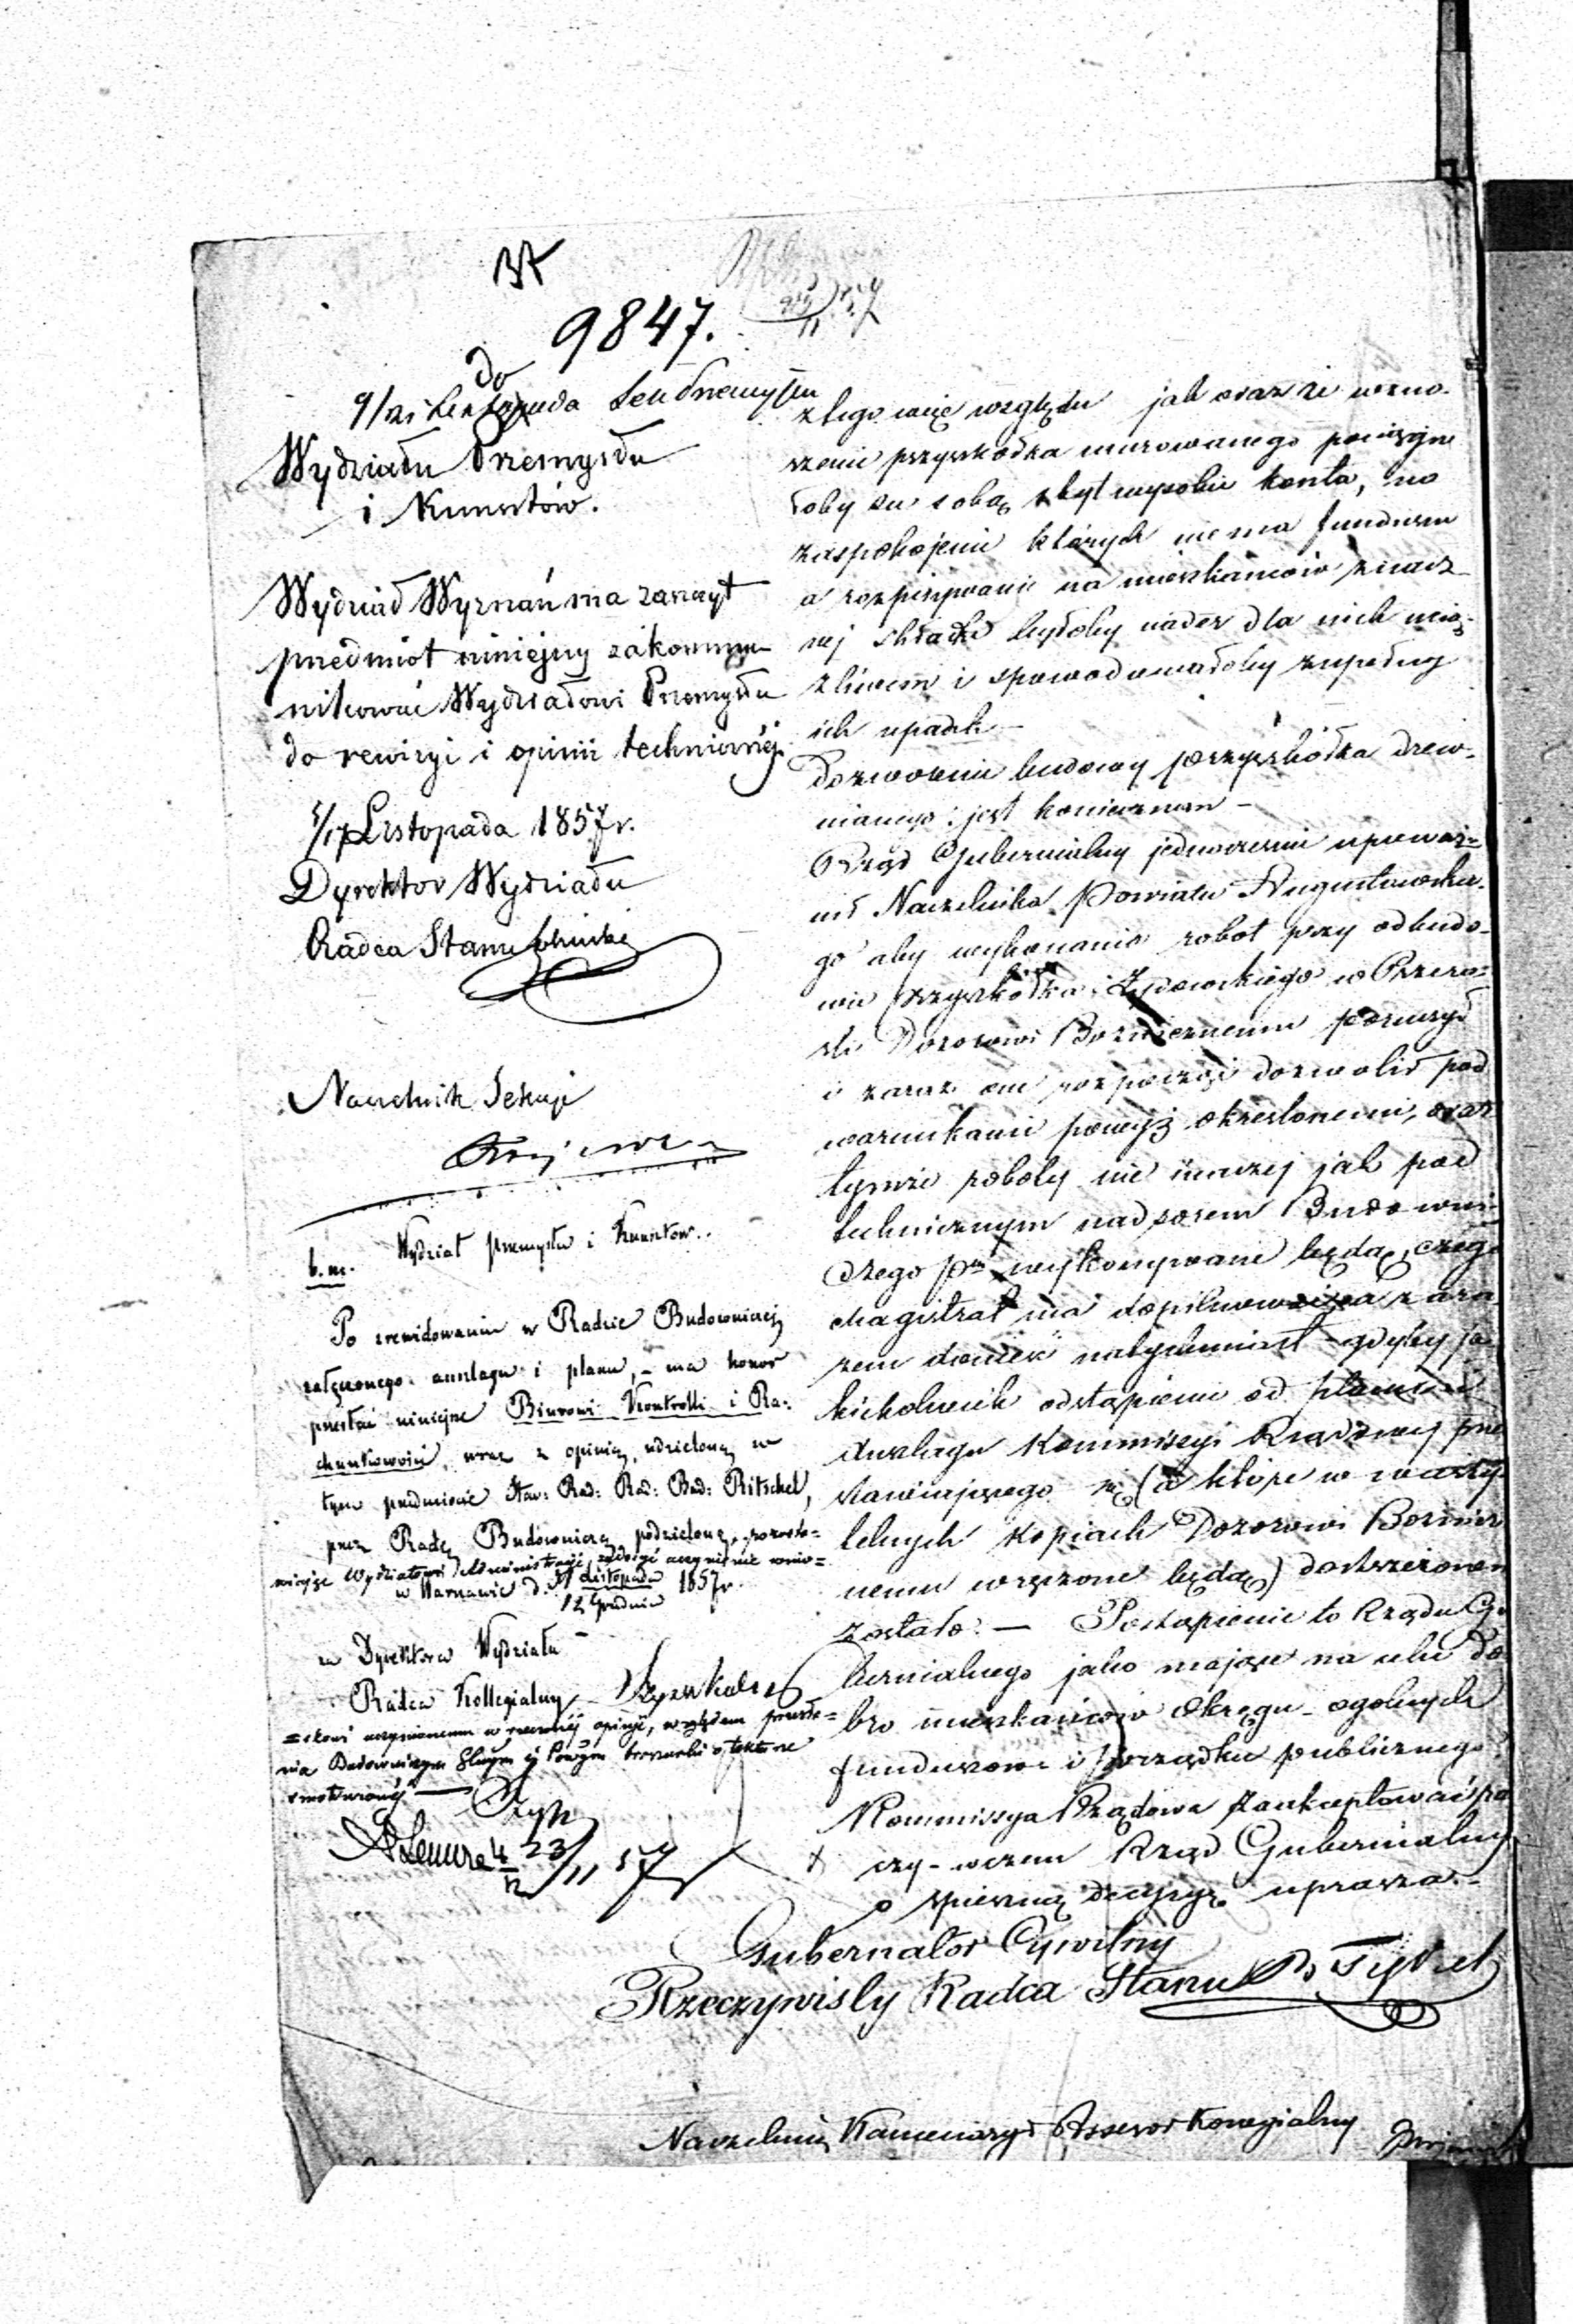 9847.
do
9/21 Listopada
Wydziału Przemysłu
i Kunsztów.
Wydział Wyznań ma zaszczyt
przedmiot niniejszy zakommu-
nikować Wydziałowi Przemysłu
do rewizyi i opinii technicznéj.
5/17 Listopada 1857 r.
Dyrektor Wydziału
Radca Stanu
Naczelnik Sekcyi
b. m. Wydział Przemysłu i Kunsztów.
Po zrewidowaniu w Radzie Budowniczej
załączonego anszlagu i planu, – ma honor
przesłać niniejsze Biurowi Kontrolli i Ra-
chunkowości, wraz z opinią, udzieloną w
tym przedmiocie Star: Rad: Rad: Bud: Ritschel,
przez Radę Budowniczą podzieloną, pozosta-
wiając Wydziałowi Administracyi, zadosyć uczynienie wnio-
w Warszawie d. Listopada 1857 r.
12 Grudnia
za Dyrektora Wydziału
Radca Kollegialny
=skowi uczynionemu w rzeczonéj opinji, względem
nia Budowniczym
z tego więc względu jak oraz że wzno-
szenie przyszkółka murowanego pociągnę
łoby za sobą zbyt wysokie koszta, na
zaspokojenie których nie ma funduszu
a rozpisywanie na mieszkańców znacz
nej składki byłoby nader dla nich ucią-
żliwem i spowodowałoby zupełny
ich upadek –
Dozwolenie budowy przyszkółka drew-
nianego jest koniecznem –
Rząd Gubernialny jednocześnie upoważ-
nił Naczelnika Powiatu Augustowskie-
go aby wykonanie robót przy odbudo-
wie przyszkółka Żydowskiego w Przero-
śli Dozorowi Bożniczemu poruczył
i zaraz one rozpocząć dozwolił pod
warunkami powyż określonemi, oraz
tymże roboty nie inaczej jak pod
technicznym nadzorem Budowni-
czego Ptu wykonywane będą, czego
Magistrat ma dopilnować a zara
zem donieść natychmiast gdyby ja
kiekolwiek odstąpienie od planu i
Anszlagu Kommissyi Rządowej przed
stawiającego się (a które w wiarty
telnych kopiach Dozorowi Bożnicz
nemu wręczone będą) dostrzeżonem
zostało. — Postąpienie to Rządu Gu
bernialnego jako mające na celu do
bro mieszkańców Okręgu ogólnych
funduszów i porządku publicznego
Kommissya Rządowa zaakceptować ra
czy – wczem Rząd Gubernialny
o spieszną decyzyę uprasza. –
Gubernator Cywilny
Rzeczywisty Radca Stanu
Naczelnik Kancelaryi Assesor Kolegialny